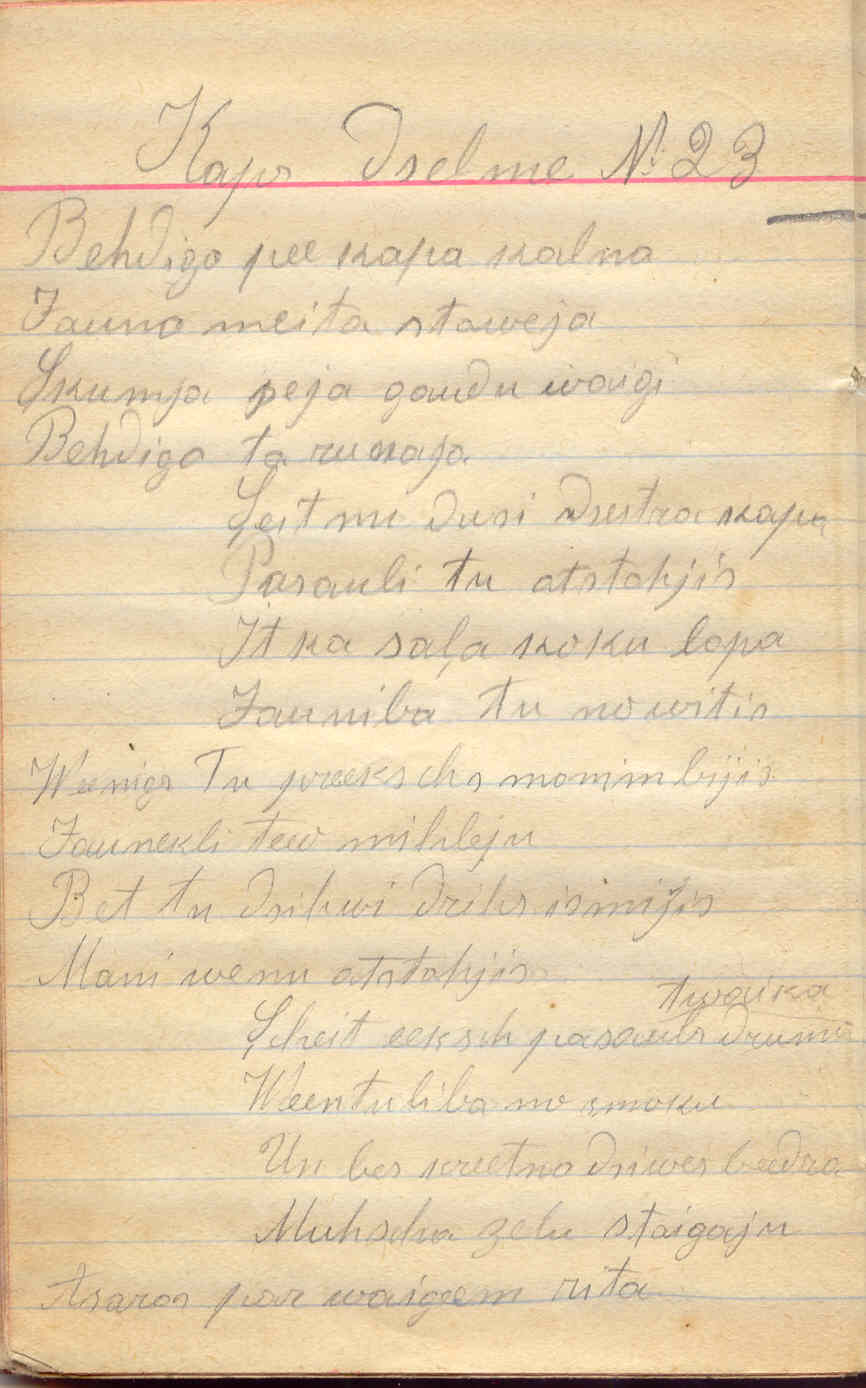 Kaps Dselme №: 23
Behdigo pee kapa kalna
Jauna meita staweja
Skumja seja gaudu waigi
Behdiga ta runaja
Şeit nu dusi dsestra kapa
Pasauli tu atstahjis
It ka saļa koku lapa
Jauniba tu nowitis
Weenigs Tu preekschs manim bijis
Jaunekli tew mihleju
Bet tu dsihwi drihs ismißis
Mani wenu atstahjis
twaika
Şcheit eeksch pasauls druma
Weentuliba no smoku
Un bes kreetna dsiwes beedra
Muhscha zelu staigaju
Asaras par waigeem rita